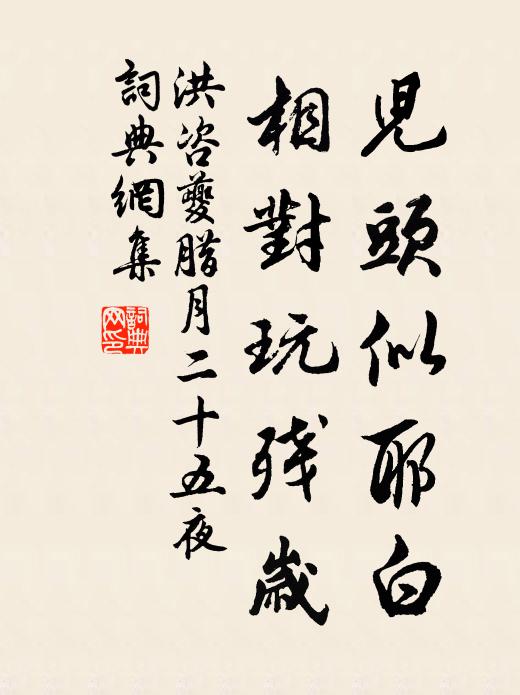 児頭似耶白
相對玩残歲
洪咨夔腊月二十五夜
詞典網集
詞典
网印